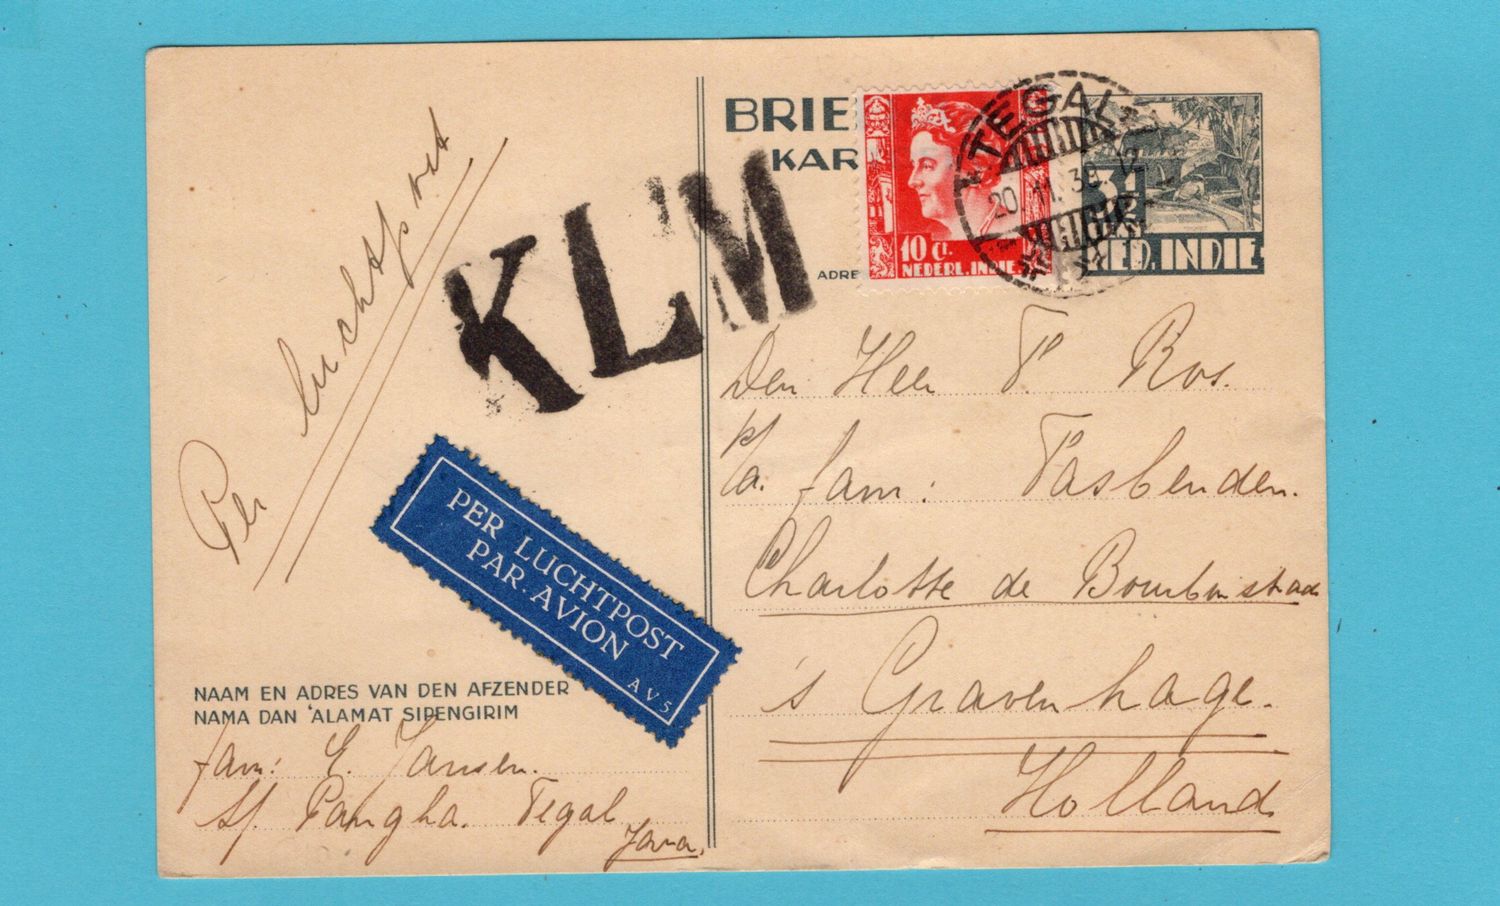 Per luchtpost
KLM
PER LUCHTPOST
PAR AVION
AV5
NAAM EN ADRES VAN DEN AFZENDER
NAMA DAN 'ALAMAT SIPENGIRIM
fam: E. Jansen.
Sf. Pangka. Tegal
Java.
BRIE
KAR
ADRE
10 Ct.
NEDERL. INDIE.
TEGAL
20.11.38.12
3½
NED. INDIE
Den Heer P. Ros.
p/a. fam: Fasbenden.
Charlotte de Bourbonstraat
's Gravenhage.
Holland